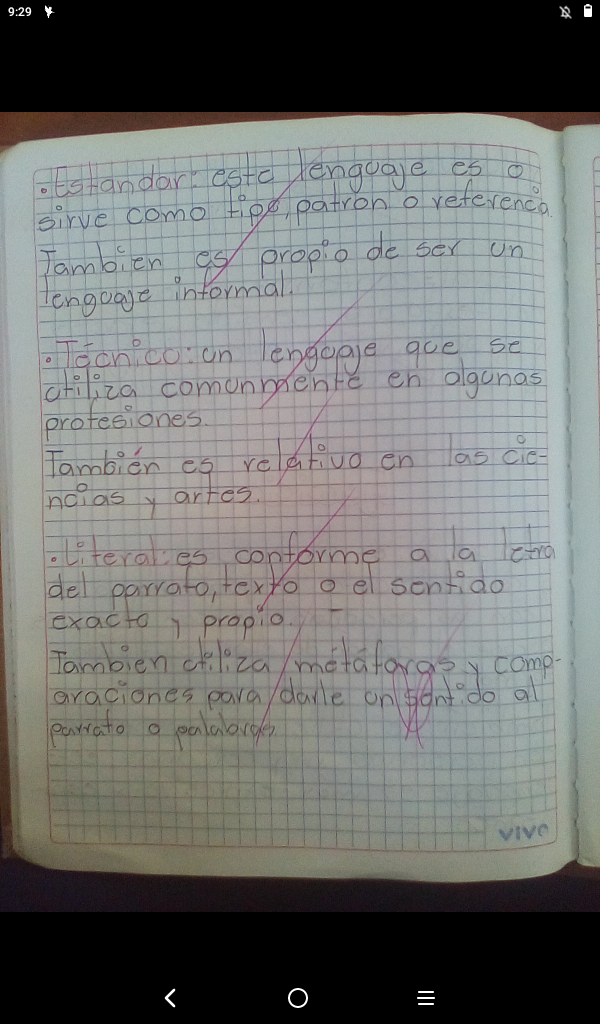 9:29
• Estandar: este lenguaje es o
sirve como tipo, patron o referencia.
Tambien es propio de ser un
lenguaje informal.
• Técnico: un lenguaje que se
utiliza comunmente en algunas
profesiones.
También es relativo en las cie-
ncias y artes.
• Literal: es conforme a la letra
del parrafo, texto o el sentido
exacto y propio.
Tambien utiliza metáforas y comp-
araciones para darle un sentido al
parrafo o palabras.
vivo